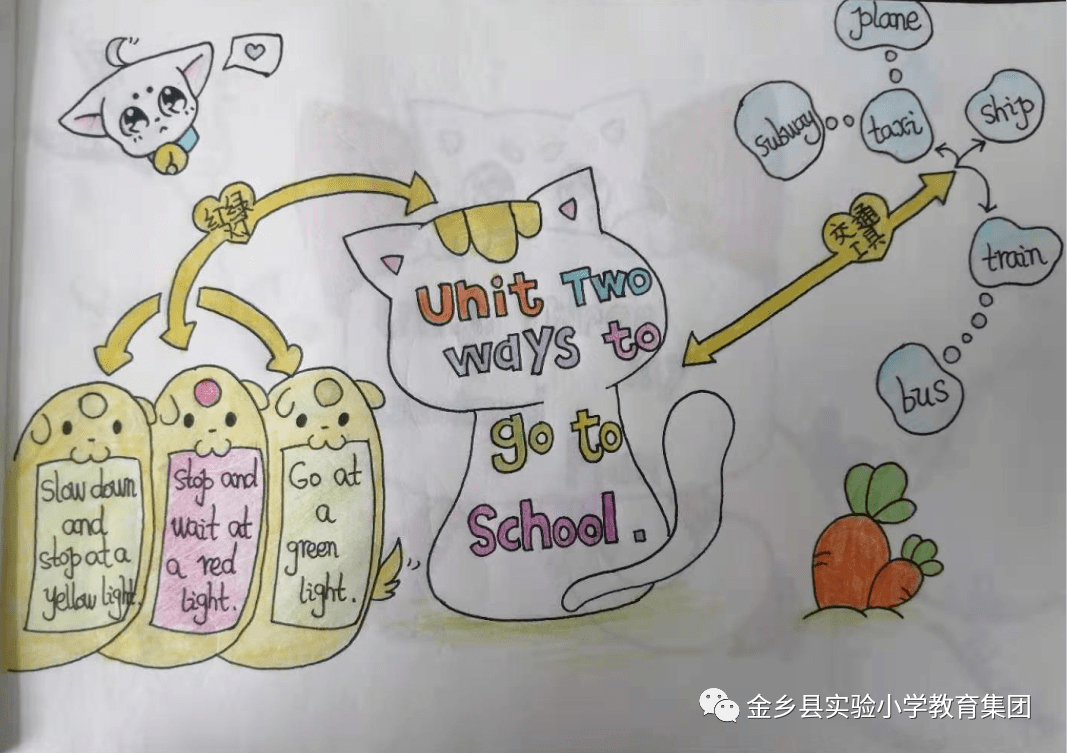 Unit Two
ways to
go to
School.
红绿
灯
Slow down
and
stop at a
yellow light.
Stop and
wait at
a red
light.
Go at
a
green
light.
交通
工具
plane
subway
taxi
ship
train
bus
金乡县实验小学教育集团